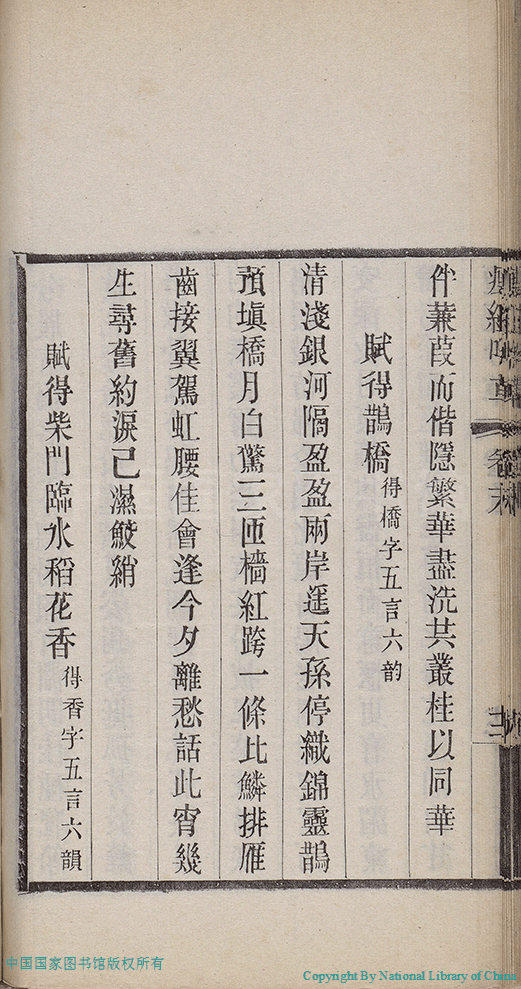 伴蒹葭而偕隱繁華盡洗共叢桂以同華
賦得鵲橋得橋字五言六韵
清淺銀河隔盈盈兩岸遥天孫停織錦靈鵲
預塡橋月白驚三匝檣紅跨一條比鱗排雁
齒接翼駕虹腰佳會逢今夕離愁話此宵幾
生尋舊約淚已濕鮫綃
賦得柴門臨水稻花香得香字五言六韻
中国国家图书馆版权所有
Copyright By National Library of China